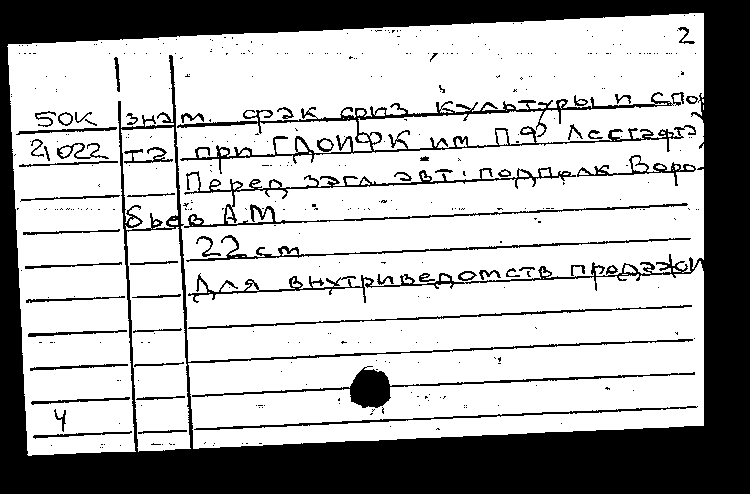 2
50К знам. фак физ культуры и спор
21022 та при ГДОИФК им П.Ф Лесгафта)
Перед загл. авт: подполк Воро-
бьев А.М.
22 cm
Для внутриведомств продажи
4